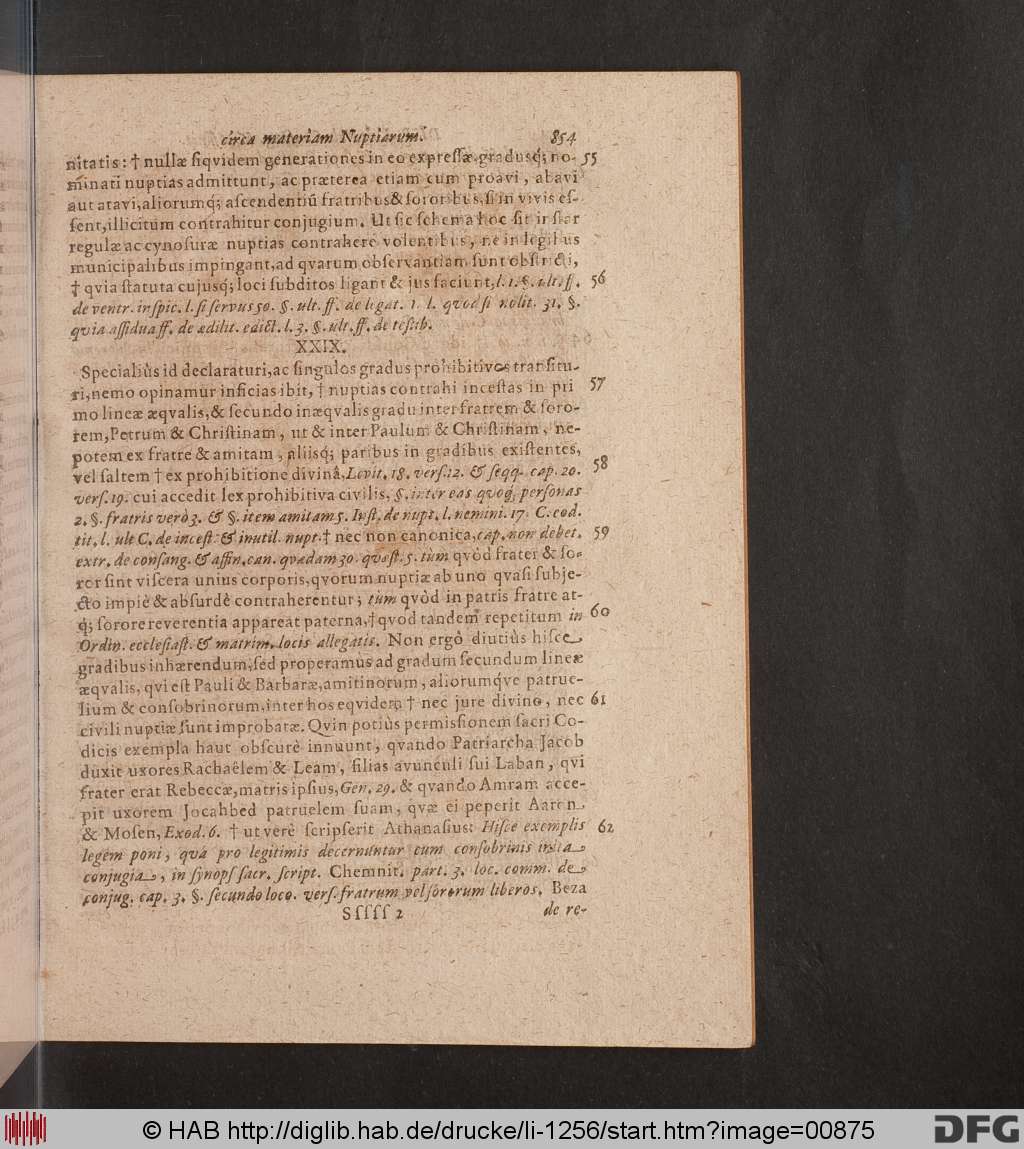 circa materiam Nuptiarum. 854
nitatis: † nullæ ſiqvidem generationes in eo expreſſæ, gradusq́; no- 55
minati nuptias admittunt, ac præterea etiam cum proavi, abavi
aut atavi, aliorumq́; aſcendentiū fratribus & ſororibus, ſi in vivis eſ-
ſent, illicitum contrahitur conjugium. Ut ſic ſchema hoc ſit inſtar
regulæ ac cynoſuræ nuptias contrahere volentibus, ne in legibus
municipalibus impingant, ad qvarum obſervantiam ſunt obſtricti,
† qvia ſtatuta cujusq́; loci ſubditos ligant & jus faciunt, l. 1. §. ult. ff. 56
de ventr. inſpic. l. ſi ſervus 50. §. ult. ff. de legat. 1. l. quod ſi nolit. 31. §.
quia aſſidua ff. de ædilit. edict. l. 3. §. ult. ff. de teſtib.
XXIX.
Specialiùs id declaraturi, ac ſingulos gradus prohibitivos tranſitu-
ri, nemo opinamur inficias ibit, † nuptias contrahi inceſtas in pri 57
mo lineæ æqvalis, & ſecundo inæqvalis gradu inter fratrem & ſoro-
rem, Petrum & Chriſtinam, ut & inter Paulum & Chriſtinam, ne-
potem ex fratre & amitam, aliisq́; paribus in gradibus exiſtentes,
vel ſaltem † ex prohibitione divinâ, Levit. 18. verſ. 12. & ſeqq. cap. 20. 58
verſ. 19. cui accedit lex prohibitiva civilis, §. inter eas quoq́; perſonas
2. §. fratris verò 3. & §. item amitam 5. Inſt. de nupt. l. nemini. 17. C. eod.
tit. l. ult C. de inceſt. & inutil. nupt. † nec non canonica, cap. non debet. 59
extr. de conſang. & affin. can. quædam 30. quæſt. 5. tùm qvòd frater & ſo-
ror ſint viſcera unius corporis, qvorum nuptiæ ab uno qvaſi ſubje-
cto impiè & abſurdè contraherentur; tùm qvòd in patris fratre at-
q́; ſorore reverentia appareat paterna, † qvod tandem repetitum in 60
Ordin. eccleſiaſt. & matrim. locis allegatis. Non ergò diutiùs hiſce
gradibus inhærendum, ſed properamus ad gradum ſecundum lineæ
æqvalis, qvi eſt Pauli & Barbaræ, amitinorum, aliorumqve patrue-
lium & conſobrinorum, inter hos eqvidem † nec jure divino, nec 61
civili nuptiæ ſunt improbatæ. Qvin potiùs permiſſionem ſacri Co-
dicis exempla haut obſcurè innuunt, qvando Patriarcha Jacob
duxit uxores Rachaêlem & Leam, filias avunculi ſui Laban, qvi
frater erat Rebeccæ, matris ipſius, Gen. 29. & qvando Amram acce-
pit uxorem Jocahbed patruelem ſuam, qvæ ei peperit Aaron
& Moſen, Exod. 6. † ut verè ſcripſerit Athanaſius: Hiſce exemplis 62
legem poni, quâ pro legitimis decernuntur cum conſobrinis inita
conjugia, in ſynopſ ſacr. ſcript. Chemnit. part. 3. loc. comm. de
conjug. cap. 3. §. ſecundo loco. verſ. fratrum vel ſororum liberos. Beza
Sſſſſ 2 de re-
© HAB http://diglib.hab.de/drucke/li-1256/start.htm?image=00875
DFG